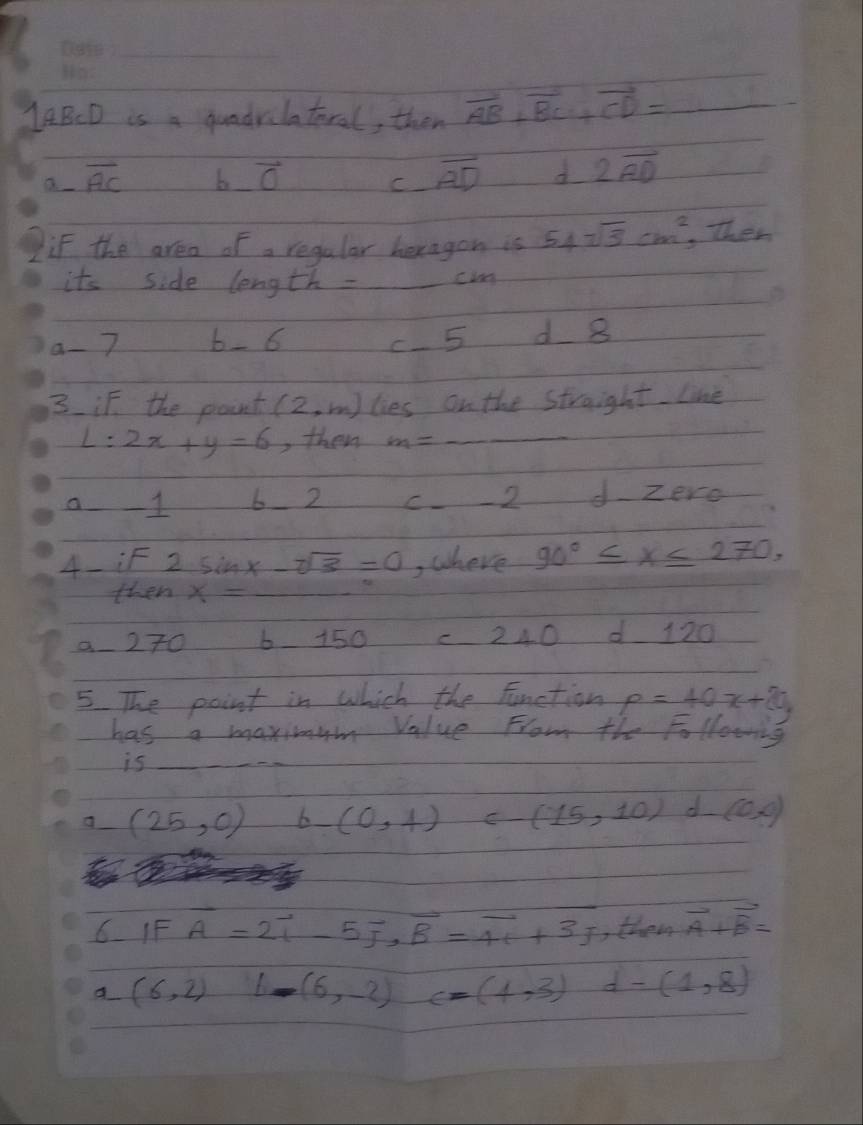 Date:
No:
1 ABCD is a quadrilateral, then AB + BC + CD =
a- AC b- O c- AD d- 2AD
2 if the area of a regular hexagon is 54√3 cm², then
its side length = cm
a- 7 b- 6 c- 5 d- 8
3- if the point (2, m) lies on the straight-line
L: 2x + y = 6, then m =
a- -1 b- 2 c- -2 d- zero
4- if 2 sinx - √3 = 0, where 90° ≤ x ≤ 270,
then x = °
a- 270 b- 150 c- 240 d- 120
5- The point in which the function p = 40x +
has a maximum value from the Following
is
a- (25, 0) b- (0, 4) c- (15, 10) d- (0,0)
6- IF A = 2i - 5j, B = 4i + 3j, then A + B =
a- (6, 2) b- (6, -2) c- (4, 3) d- (1, 8)